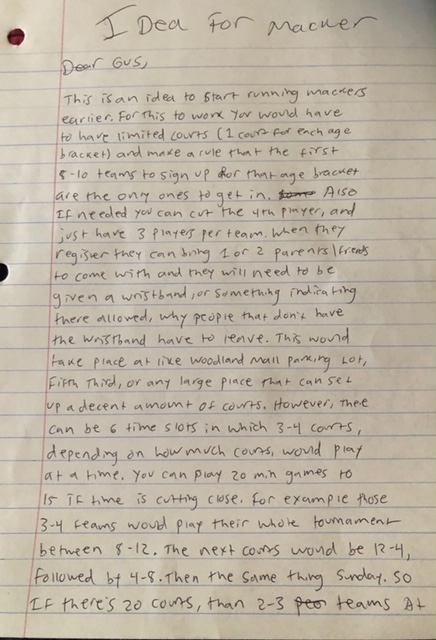 I Dea For Macker
Dear Gus,
This is an idea to start running mackers
earlier. For this to work you would have
to have limited courts (1 court for each age
bracket) and make a rule that the first
8-10 teams to sign up for that age bracket
are the only ones to get in. Also
If needed you can cut the 4th player, and
just have 3 players per team. When they
register they can bring 1 or 2 parents/friends
to come with and they will need to be
given a wristband, or something indicating
there allowed, why people that don't have
the wristband have to leave. This would
take place at like Woodland Mall Parking Lot,
Fifth Third, or any large place that can set
up a decent amount of courts. However, There
can be 6 time slots in which 3-4 courts,
depending on how much courts, would play
at a time. You can play 20 min games to
15 if time is cutting close. For example those
3-4 teams would play their whole tournament
between 8-12. The next courts would be 12-4,
followed by 4-8. Then the same thing Sunday. So
If there's 20 courts, than 2-3 teams At